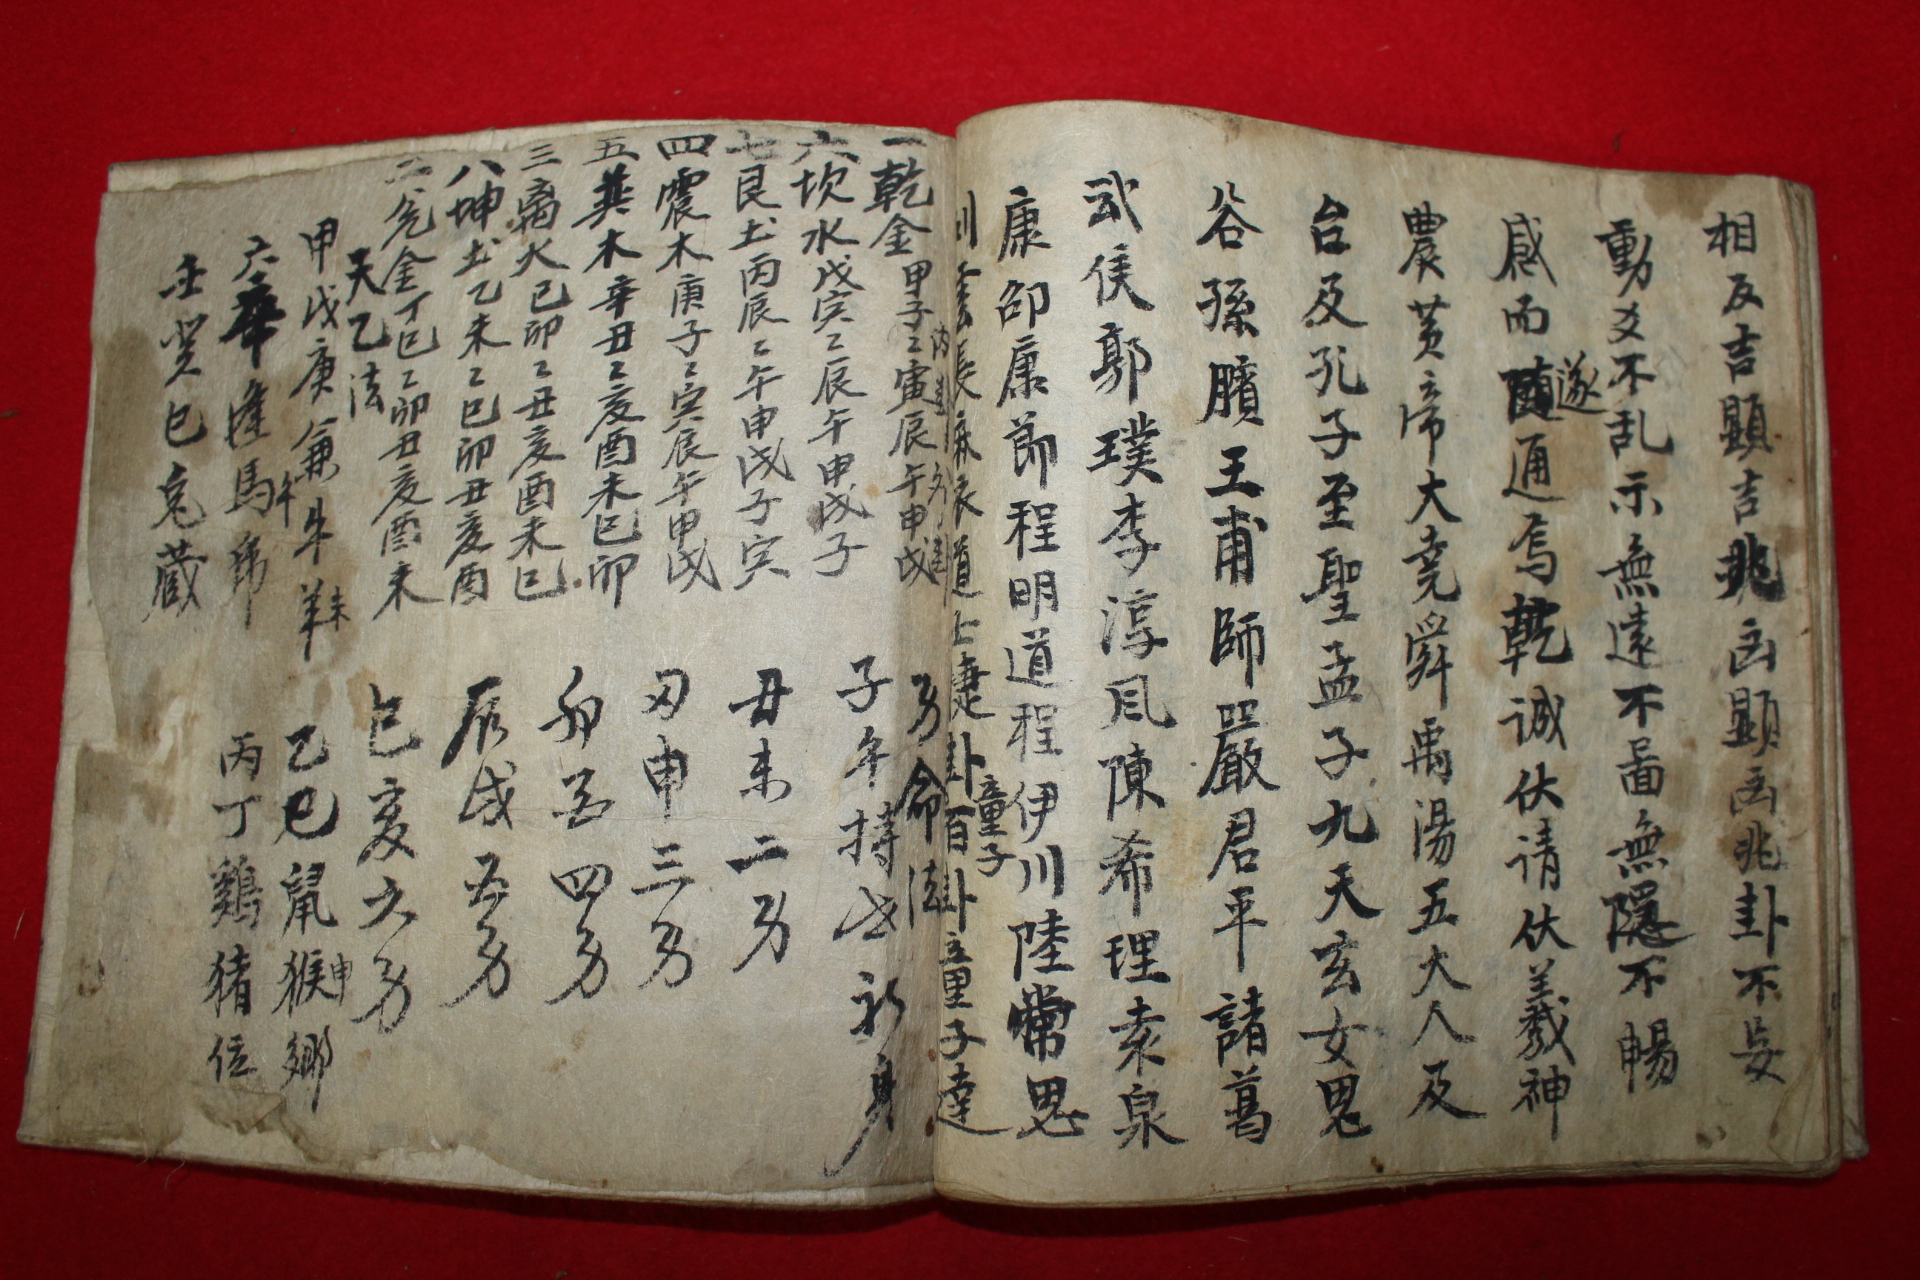 相反吉顕吉兆凶顕凶兆卦不妄
動爻不乱示無遠不啚無隱不暢
感而遂通焉乾誠伏请伏羲神
農黃帝大堯舜禹湯五大人及
台及孔子至聖孟子九天玄女鬼
谷孫臏王甫師嚴君平諸葛
武侯郭璞李淳風陳希理索泉
康邵康節程明道程伊川陸常思
長麻衣道士捷卦童子百卦童子達
一乾金甲子乙寅辰午申戌
六坎水戊寅乙辰午申戌子
七艮土丙辰乙午申戌子寅
四震木庚子乙寅辰午甲戌
五巽木辛丑乙亥酉未巳卯
三离火己卯乙丑亥酉未巳
八坤土乙未乙巳卯丑亥酉
二兌金丁巳乙卯丑亥酉未
命法
子午持世初身
丑未二
申三
卯四
辰戌
巳亥六
天乙法
甲戊庚兼牛羊未
乙巳鼠猴申鄉
六辛逢馬
丙丁鷄猪位
壬癸巳兎蔵